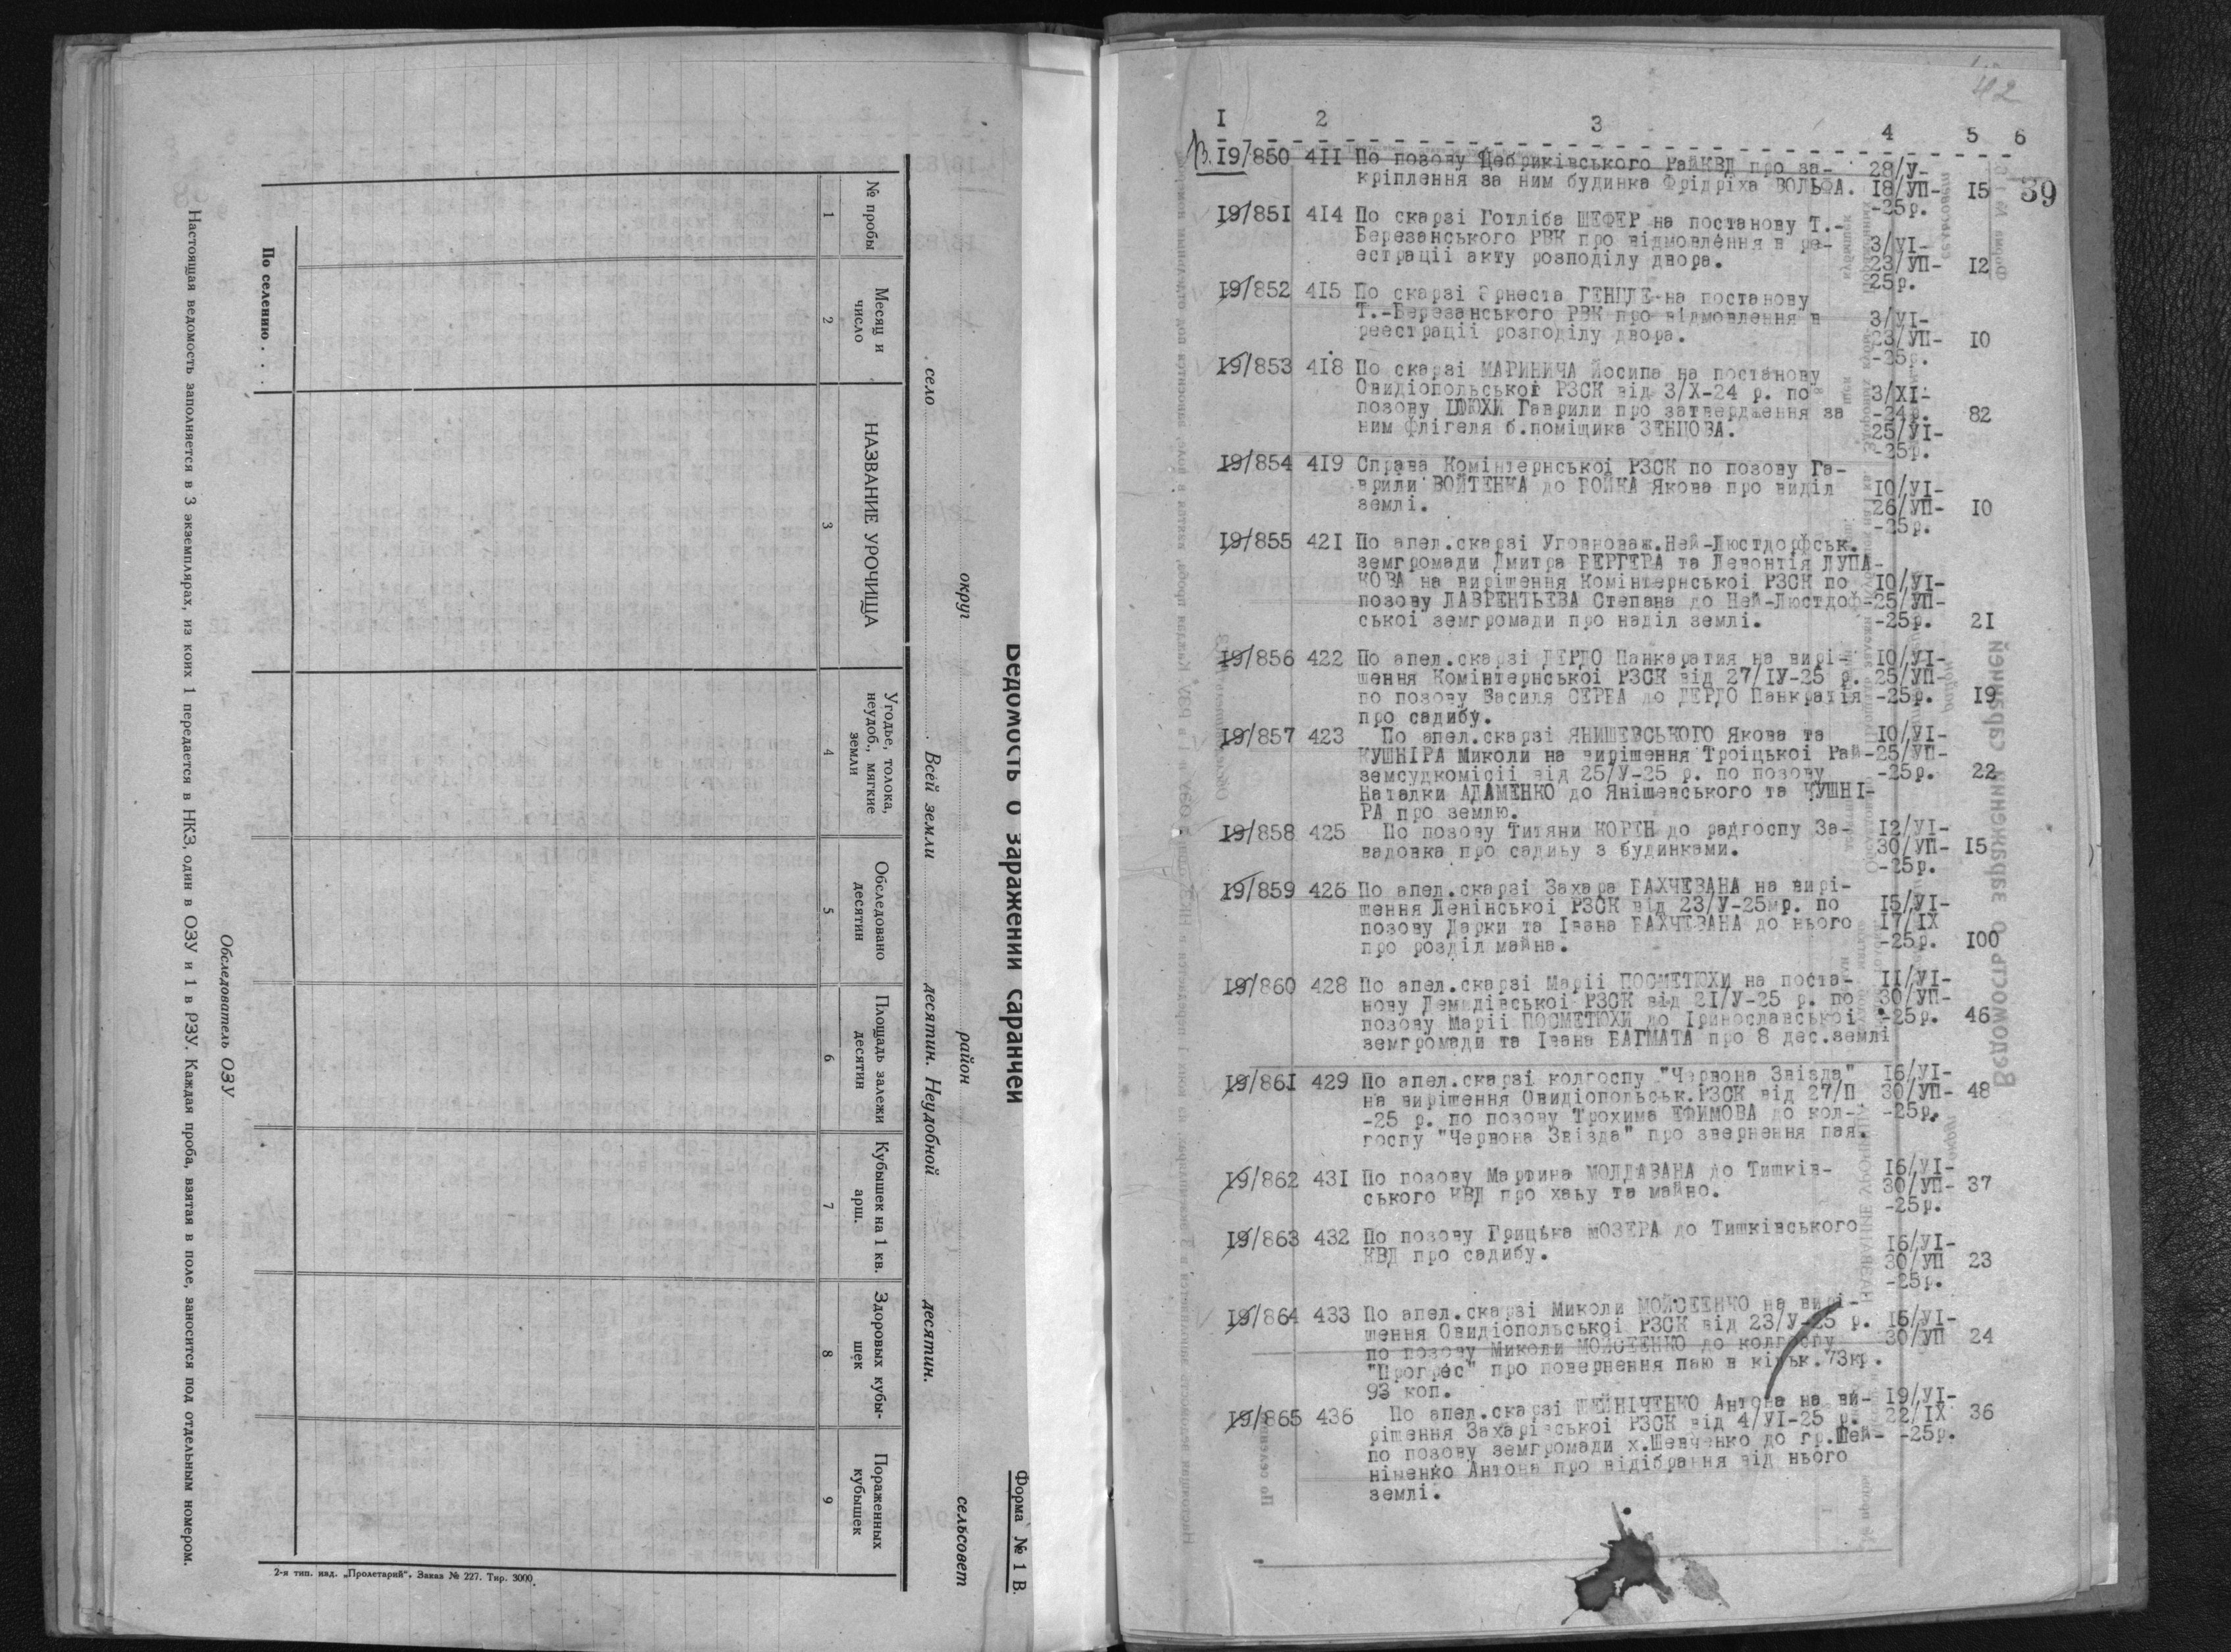 Ведомость о заражении саранчей
Форма № 1 В.
округ район сельсовет
село Всей земли десятин. Неудобной десятин.
№ пробы
Месяц и число
НАЗВАНИЕ УРОЧИЩА
Угодье, толока, неудоб., мягкие земли
Обследовано десятин
Площадь залежи десятин
Кубышек на 1 кв. арш.
Здоровых кубышек
Пораженных кубышек
1 2 3 4 5 6 7 8 9
По селению . . .
Обследователь ОЗУ
Настоящая ведомость заполняется в 3 экземплярах, из коих 1 передается в НКЗ, один в ОЗУ и 1 в РЗУ. Каждая проба, взятая в поле, заносится под отдельным номером.
2-я тип. изд. „Пролетарий“. Заказ № 227. Тир. 3000.
42
39
I 2 3 4 5 6
I9/850 4II По позову Цебриківського РайКВД про за- 28/У-
кріплення за ним будинка Фрідріха ВОЛЬФА. I8/УП- I5
-25р.
I9/851 4I4 По скарзі Готліба ШЕФЕР на постанову Т.-
Березанського РВК про відмовлення в ре- 3/УІ-
естрації акту розподілу двора. 23/УП- I2
25р.
I9/852 4I5 По скарзі Эрнеста ГЕНЦЛЕ на постанову
Т.-Березанського РВК про відмовлення в 3/УІ-
реестрації розподілу двора. 23/УП- I0
-25р.
I9/853 4I8 По скарзі МАРИНИЧА Йосипа на постанову
Овидіопольської РЗСК від 3/Х-24 р. по 3/ХІ-
позову ЦЮЮХИ Гаврили про затвердження за -24р. 82
ним флігеля б.поміщика ЗЕНЦОВА. 25/УІ-
-25р.
I9/854 4I9 Справа Комінтернської РЗСК по позову Га-
врили ВОЙТЕНКА до БОЙКА Якова про виділ I0/УІ-
землі. 26/УП- I0
-25р.
I9/855 42I По апел.скарзі Уповноваж.Ней-Люстдорфськ.
земгромади Дмитра БЕРГЕРА та Левонтія ЛУПА-
КОВА на вирішення Комінтернської РЗСК по I0/УІ-
позову ЛАВРЕНТЬЕВА Степана до Ней-Люстдоф-25/УП-
ської земгромади про наділ землі. -25р. 2I
I9/856 422 По апел.скарзі ДЕРДО Панкаратия на вирі- I0/УІ-
шення Комінтернської РЗСК від 27/ІУ-25 р. 25/УП-
по позову Василя СЕРБА до ДЕРДО Панкратія -25р. I9
про садибу.
I9/857 423 По апел.скарзі ЯНИШЕВСЬКОГО Якова та I0/УІ-
КУШНІРА Миколи на вирішення Троіцької Рай-25/УП-
земсудкомісії від 25/У-25 р. по позову -25р. 22
Наталки АДАМЕНКО до Янішевського та КУШНІ-
РА про землю.
I9/858 425 По позову Титяни КОРЕН до радгоспу За- I2/УІ-
вадовка про садиьу з будинками. 30/УП- I5
-25р.
I9/859 426 По апел.скарзі Захара БАХЧЕВАНА на вирі-
шення Ленінської РЗСК від 23/У-25мр. по I5/УІ-
позову Дарки та Івана БАХЧЕВАНА до нього I7/ІХ
про розділ майна. -25р. I00
I9/860 428 По апел.скарзі Марії ПОСМЕТЮХИ на поста- II/УІ-
нову Демидівської РЗСК від 2I/У-25 р. по 30/УП-
позову Марії ПОСМЕТЮХИ до Іринославської -25р. 46
земгромади та Івана БАГМАТА про 8 дес.землі
I9/86I 429 По апел.скарзі колгоспу "Червона Звізда" I6/УІ-
на вирішення Овидіопольськ.РЗСК від 27/П 30/УП- 48
-25 р. по позову Трохима ЕФИМОВА до кол- -25р.
госпу "Червона Звізда" про звернення пая.
I9/862 43I По позову Мартина МОЛДАВАНА до Тишків- I6/УІ-
ського КВД про хаьу та майно. 30/УП- 37
-25р.
I9/863 432 По позову Грицька МОЗЕРА до Тишківського
КВД про садибу. I6/УІ-
30/УП 23
-25р.
I9/864 433 По апел.скарзі Миколи МОЙСЕЕНКО на вирі-
шення Овидіопольської РЗСК від 23/У-25 р. I6/УІ-
по позову Миколи МОЙСЕЕНКО до колгоспу 30/УП 24
"Прогрес" про повернення паю в кільк.73кр.
93 коп.
I9/865 436 По апел.скарзі ШЕЙНІЧЕНКО Антона на ви- I9/УІ-
рішення Захарівської РЗСК від 4/УІ-25 р. 22/ІХ 36
по позову земгромади х.Шевченко до гр.Шей- -25р.
ніченко Антона про відібрання від нього
землі.